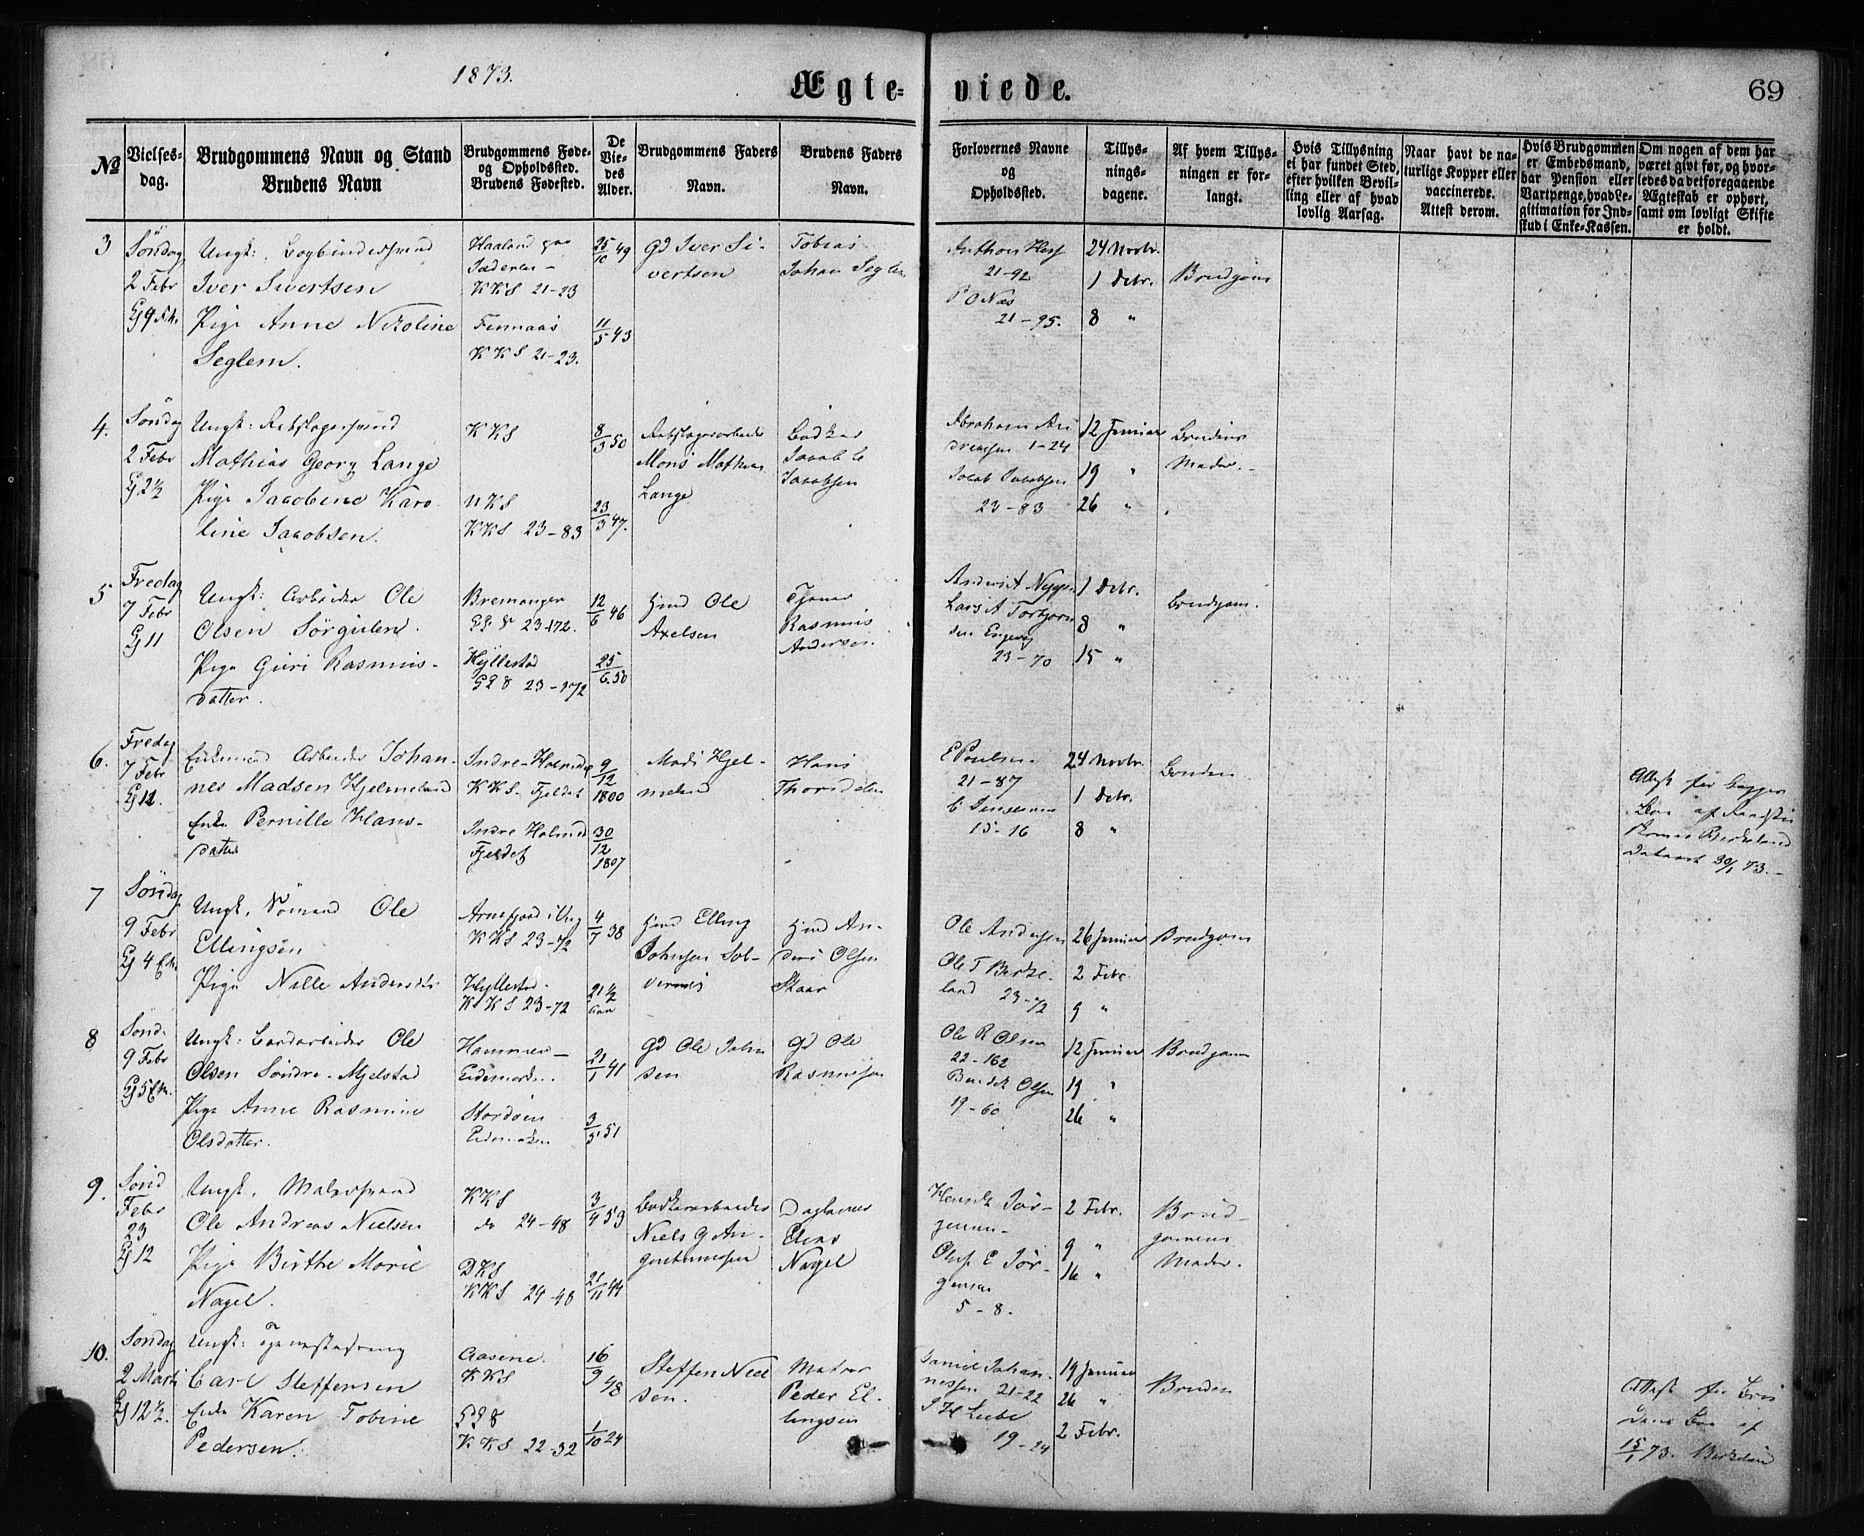 1873.
Ægte= viede.
69
№
Vielses-
dag.
Brudgommens Navn og Stand
Brudens Navn
Brudgommens Føde-
og Opholdssted.
Brudens Fødested.
De
Vie-
des
Alder.
Brudgommens Faders
Navn.
Brudens Faders
Navn.
Forlovernes Navne
og
Opholdssted.
Tillys-
nings-
dagene.
Af hvem Tillys-
ningen er for-
langt.
Hvis Tillysning
ei har fundet Sted,
efter hvilken Bevil-
ling eller af hvad
lovlig Aarsag.
Naar havt de na-
turlige Kopper eller
vaccinerede.
Attest derom.
Hvis Brudgommen
er Embedsmand,
har Pension eller
Vartpenge, hvad Le-
gitimation for Ind-
skud i Enke-Kassen.
Om nogen af dem har
været givt før, og hvor-
ledes da det foregaaende
Ægteskab er ophørt,
samt om lovligt Skifte
er holdt.
3
Søndag
2 Febr
Ungk: Bogbindersvend
Iver Sivertsen
Pige Anne Nicoline
Seglem.
Haaland paa
Jæderen
KKS 21-23
Finnaas
KKS 21-23.
25/10 49
11/5 43
Gd Iver Si-
vertsen
Tobias
Johan Seglem
21-92
P O Næs
21-95.
24 Novbr.
1 Debr.
8 "
Brudgom
4.
Søndag
2 Febr
Eg 2½
Ungk: Rebslagersvend
Mathias Georg Lange
Pige Jacobine Karo-
line Jacobsen.
KKS
NKS
KKS 23-83
8/3 50
23/3 47.
Rebslagerarbeider
Mons Mathias
Lange
Bødker
Jacob
Jacobsen
Abraham An
dreasen 1-24
Jacob Jacobsen
23-83
12 Januar
19 "
26 "
Brudens
Moder.
5
Fredag
7 Febr
Eg 11
Ungk: Arbeider Ole
Olsen Sørgulen.
Pige Guri Rasmus-
datter.
Bremanger
23-172.
Hyllestad
23-172
12/6 46
25/6 50
Hmd Ole
Axelsen
Tjener
Rasmus
Andersen
Lars A Torbjørn
sen Engevig
23-70
1 Debr.
8 "
15 "
Brudgom.
6.
Fredag
7 Febr
Eg 11.
Enkemand Arbeider Johan-
nes Madsen Hjelmeland
Enke Pernille Hans-
datter
Indre Holmedal
KKS. Fjeldet
Indre Holmedal
Fjeldet
9/12 1800
30/12 1807
Mads Hjel-
meland
Hans
E Poulsen
21-87
15-16
24 Novbr.
1 Debr.
8 "
Bruden
Attest for begges
Bo af
Birkeland
dateret 30/1 73.
7
Søndag
9 Febr
Eg 4 Em.
Ungk. Sømand Ole
Ellingsen
Pige Nille Andersdtr
Arnefjord i Vig
KKS 23-72
Hyllestad
KKS 23-72
4/7 38
21½
Aar
Hmd Elling
Johnsen Sol-
Hmd An-
ders Olsen
Skaar
Ole Andersen
Ole T Birke-
land 23-72
26 Januar
2 Febr.
9 "
Brudgom
8
Sønd.
9 Febr
Eg 5 Em.
Ungk: Jordarbeider Ole
Olsen Søndre-Mjelstad
Pige Anne Rasmine
Olsdatter.
Hammer
Eidemarken.
Stordøen
Eidemarken
21/1 41
3/5 51
Gd Ole John
sen
Gd Ole
Rasmussen
Ole R Olsen
22-162
Bendik Olsen
19-60
12 Januar
19 "
26 "
Brudgom
9.
Sønd
Febr
23
Eg 12
Ungk. Malersvend
Ole Andreas Nielsen
Pige Birthe Marie
Nagel.
KKS
do 24-48
DKS
KKS 24-48
3/4 53
21/11 44
Bødkerarbeider
Niels G An-
Daglønner
Elias
Nagel
Henrik Jør-
gensen
Oluf E Jør-
gensen
5-8.
2 Febr.
9 "
16 "
Brud-
gommens
Moder.
10.
Søndag
2 Marts
Eg 12½.
Ungk:
Carl Steffensen
Enke Karen Tobine
Pedersen.
Aasene.
KKS
KKS 22-32
16/9 48
1/10 24
Steffen Niel
sen.
Matros
Peder El-
lingsen
Daniel Johan-
nessen 21-22
19-24
19 Januar
26 "
2 Febr.
Bruden
Attest for Bru
dens Bo af
15/1 73. Birkeland